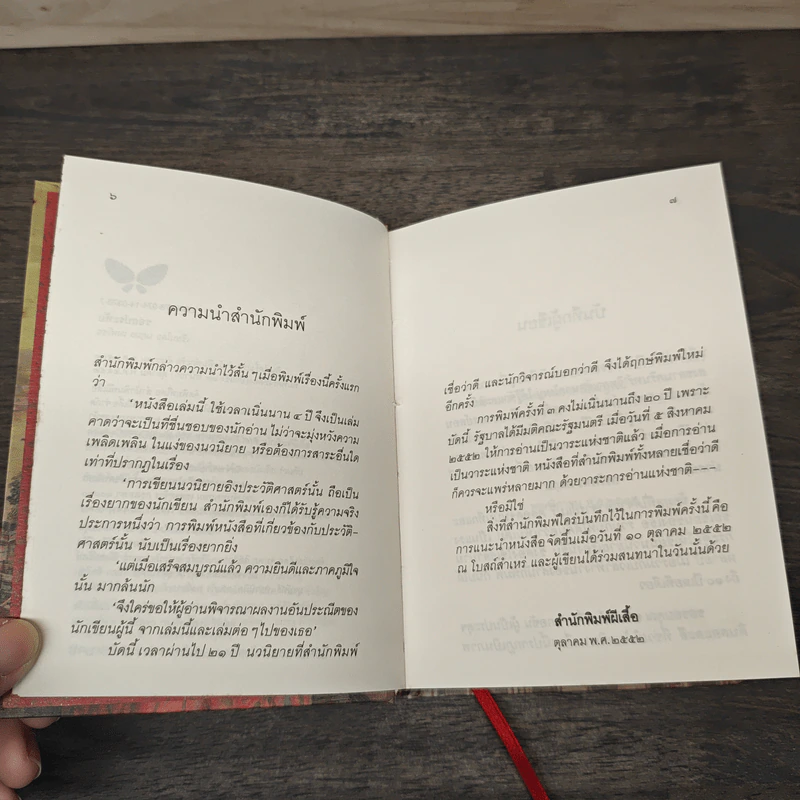 ๖
ความนำสำนักพิมพ์
สำนักพิมพ์กล่าวความนำไว้สั้น ๆ เมื่อพิมพ์เรื่องนี้ครั้งแรก
ว่า
‘หนังสือเล่มนี้ ใช้เวลาเนิ่นนาน ๔ ปี จึงเป็นเล่ม
คาดว่าจะเป็นที่ชื่นชอบของนักอ่าน ไม่ว่าจะมุ่งหวังความ
เพลิดเพลิน ในแง่ของนวนิยาย หรือต้องการสาระอื่นใด
เท่าที่ปรากฏในเรื่อง
‘การเขียนนวนิยายอิงประวัติศาสตร์นั้น ถือเป็น
เรื่องยากของนักเขียน สำนักพิมพ์เองก็ได้รับรู้ความจริง
ประการหนึ่งว่า การพิมพ์หนังสือที่เกี่ยวข้องกับประวัติ-
ศาสตร์นั้น นับเป็นเรื่องยากยิ่ง
‘แต่เมื่อเสร็จสมบูรณ์แล้ว ความยินดีและภาคภูมิใจ
นั้น มากล้นนัก
‘จึงใคร่ขอให้ผู้อ่านพิจารณาผลงานอันประณีตของ
นักเขียนผู้นี้ จากเล่มนี้และเล่มต่อ ๆ ไปของเธอ’
บัดนี้ เวลาผ่านไป ๒๑ ปี นวนิยายที่สำนักพิมพ์
๗
เชื่อว่าดี และนักวิจารณ์บอกว่าดี จึงได้ฤกษ์พิมพ์ใหม่
อีกครั้ง
การพิมพ์ครั้งที่ ๓ คงไม่เนิ่นนานถึง ๒๐ ปี เพราะ
บัดนี้ รัฐบาลได้มีมติคณะรัฐมนตรี เมื่อวันที่ ๕ สิงหาคม
๒๕๕๒ ให้การอ่านเป็นวาระแห่งชาติแล้ว เมื่อการอ่าน
เป็นวาระแห่งชาติ หนังสือที่สำนักพิมพ์ทั้งหลายเชื่อว่าดี
ก็ควรจะแพร่หลายมาก ด้วยวาระการอ่านแห่งชาติ---
หรือมิใช่
สิ่งที่สำนักพิมพ์ใคร่บันทึกไว้ในการพิมพ์ครั้งนี้ คือ
การแนะนำหนังสือ จัดขึ้นเมื่อวันที่ ๑๐ ตุลาคม ๒๕๕๒
ณ โบสถ์สำเหร่ และผู้เขียนได้ร่วมสนทนาในวันนั้นด้วย
สำนักพิมพ์ผีเสื้อ
ตุลาคม พ.ศ. ๒๕๕๒